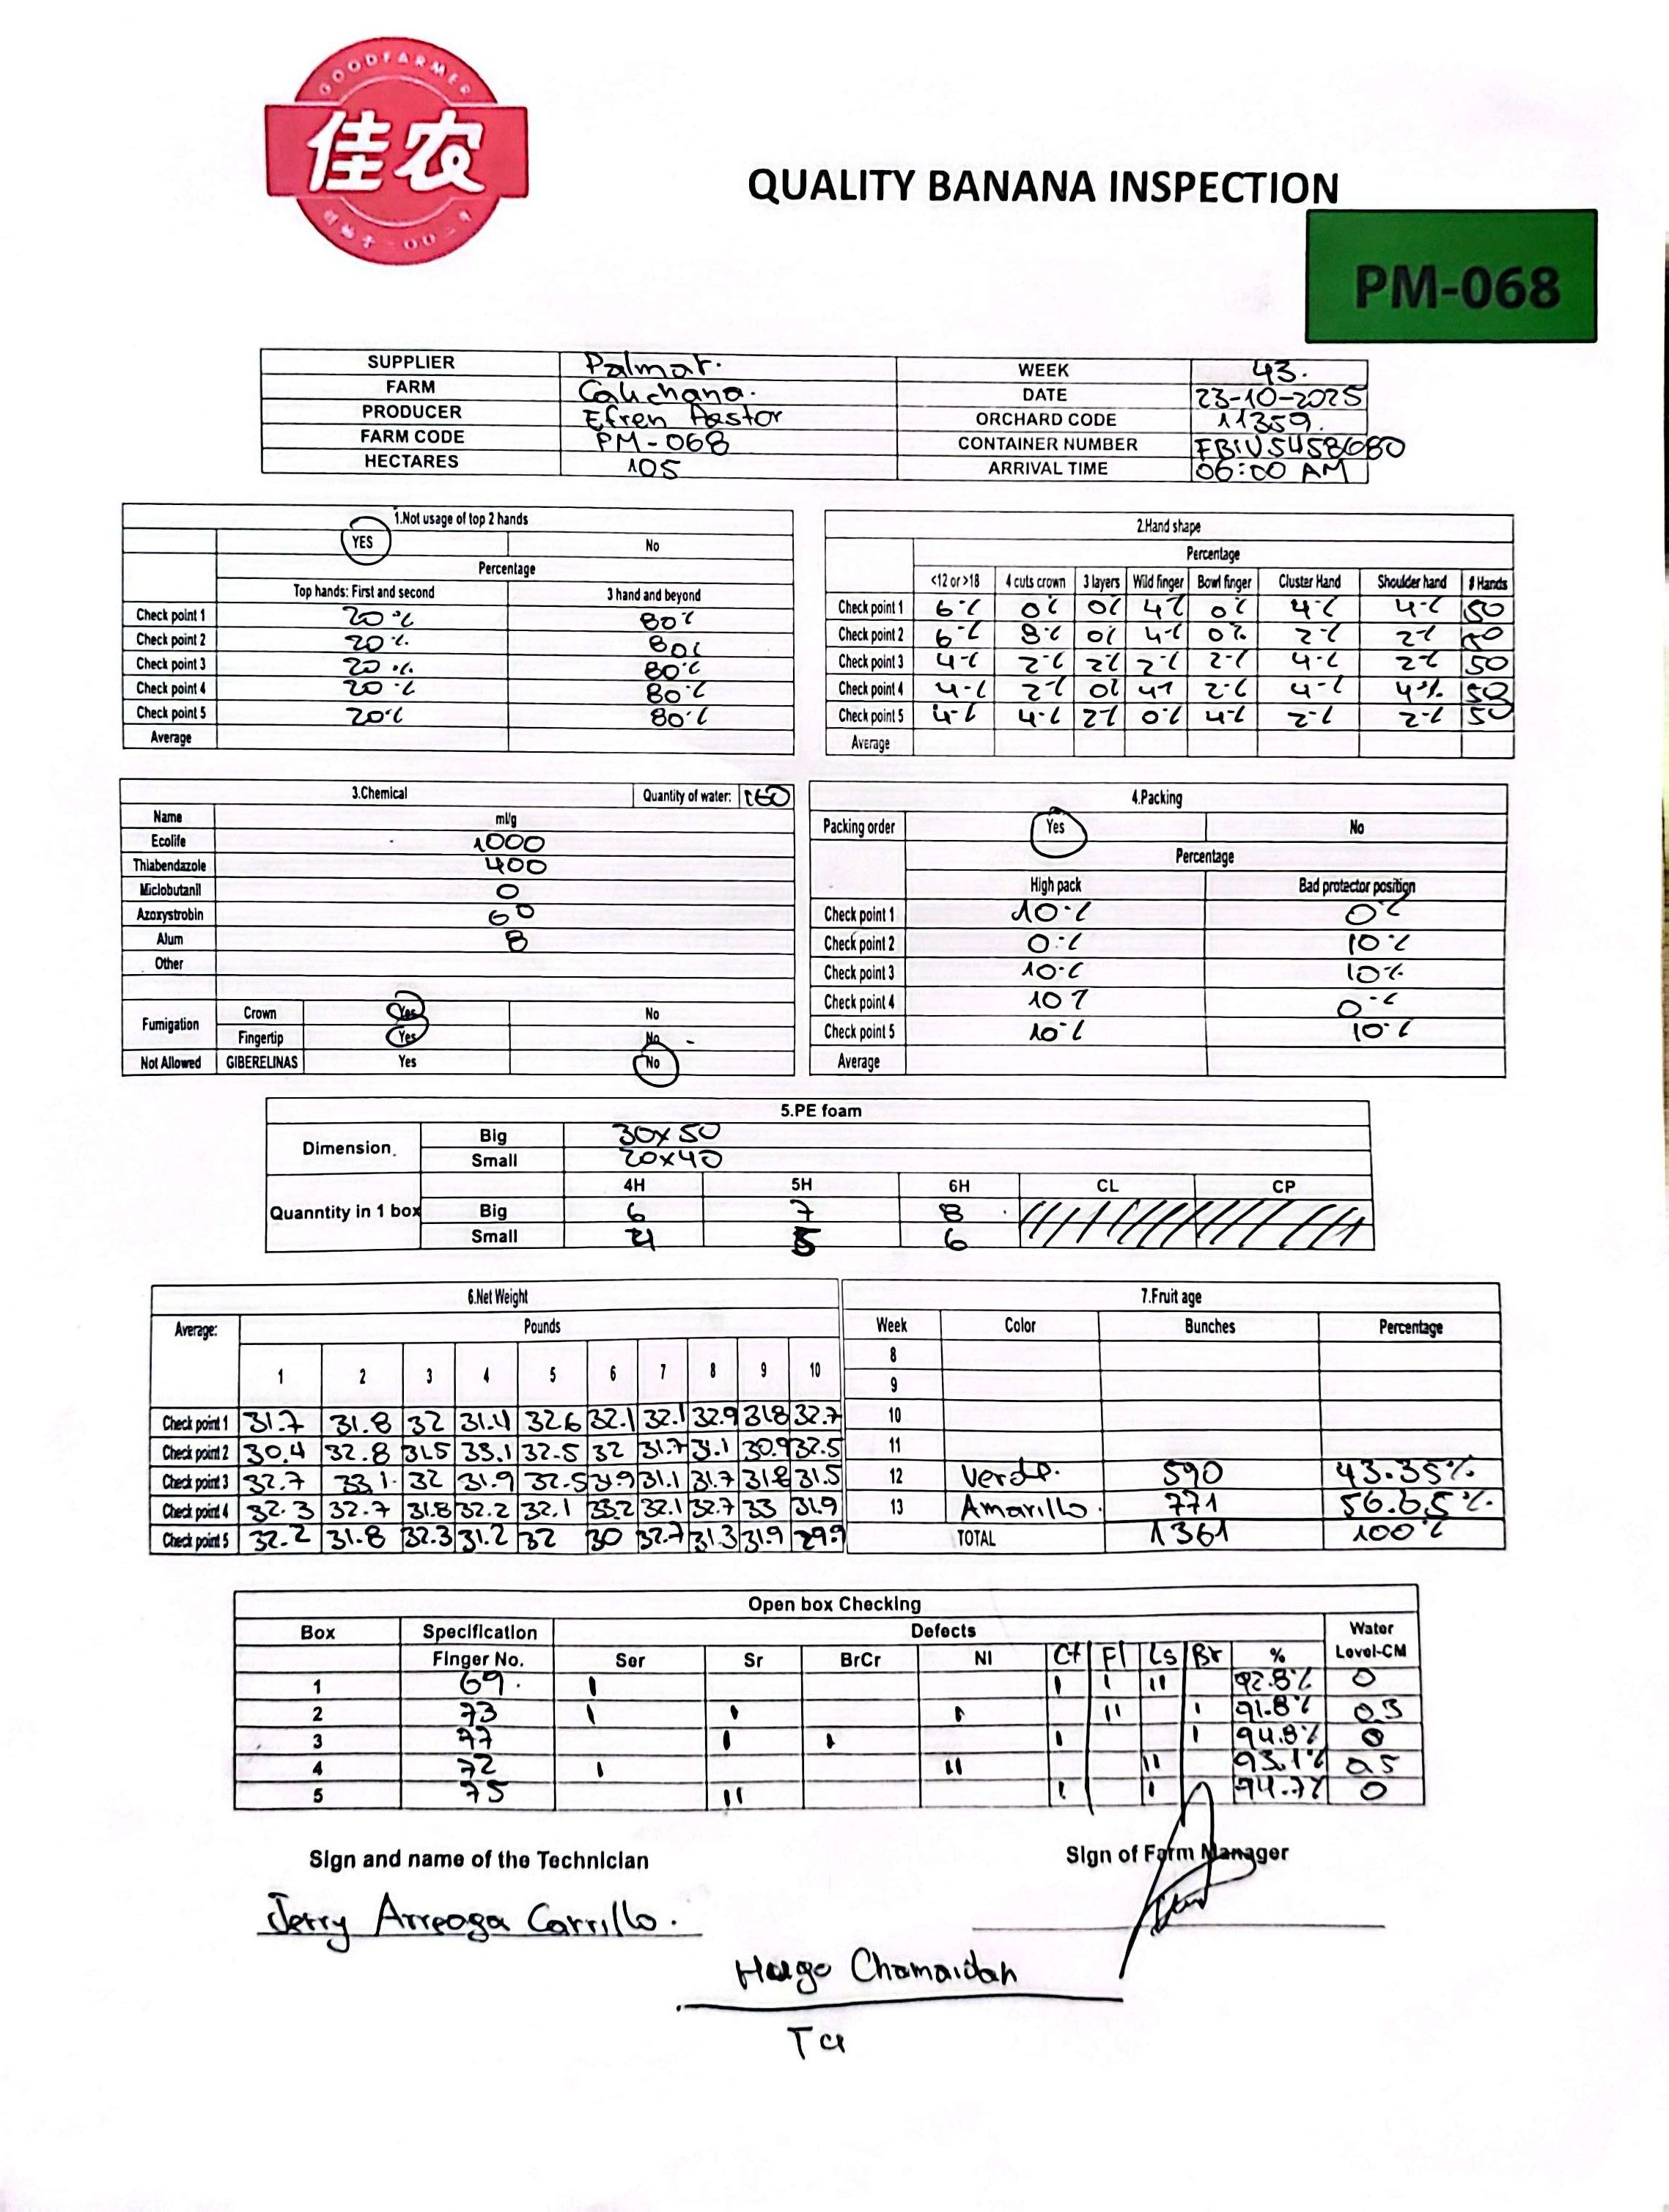 GOODFARMER
佳农
QUALITY BANANA INSPECTION
PM-068
SUPPLIER Palmar. WEEK 43.
FARM DATE 23-10-2025
PRODUCER Efren Pastor ORCHARD CODE 11359.
FARM CODE PM-068 CONTAINER NUMBER
HECTARES 105 ARRIVAL TIME 06:00 AM
1.Not usage of top 2 hands
YES No
Percentage
Top hands: First and second 3 hand and beyond
Check point 1 20% 80%
Check point 2 20% 80%
Check point 3 20% 80%
Check point 4 20% 80%
Check point 5 20% 80%
Average
2.Hand shape
Percentage
<12 or >18 4 cuts crown 3 layers Wild finger Bowl finger Cluster Hand Shoulder hand # Hands
Check point 1 6% 0% 0% 4% 0% 4% 4% 50
Check point 2 6% 8% 0% 4% 0% 2% 2% 50
Check point 3 4% 2% 2% 2% 2% 4% 2% 50
Check point 4 4% 2% 0% 4% 2% 4% 4% 50
Check point 5 4% 4% 2% 0% 4% 2% 2% 50
Average
3.Chemical Quantity of water: 160
Name ml/g
Ecolife 1000
Thiabendazole 400
Miclobutanil 0
Azoxystrobin 60
Alum 8
Other
Fumigation Crown Yes No
Fingertip Yes No
Not Allowed GIBERELINAS Yes No
4.Packing
Packing order Yes No
Percentage
High pack Bad protector position
Check point 1 10% 0%
Check point 2 0% 10%
Check point 3 10% 10%
Check point 4 10% 0%
Check point 5 10% 10%
Average
5.PE foam
Dimension Big 30x50
Small 20x40
4H 5H 6H CL CP
Quanntity in 1 box Big 6 7 8
Small 4 5 6
6.Net Weight
Average: Pounds
1 2 3 4 5 6 7 8 9 10
Check point 1 31.7 31.8 32 31.4 32.6 32.1 32.1 32.9 31.8 32.7
Check point 2 30.4 32.8 31.5 33.1 32.5 32 31.7 31.1 30.9 32.5
Check point 3 32.7 33.1 32 31.9 32.5 31.9 31.1 31.7 31.8 31.5
Check point 4 32.3 32.7 31.8 32.2 32.1 33.2 32.1 32.7 33 31.9
Check point 5 32.2 31.8 32.3 31.2 32 30 32.7 31.3 31.9 29.9
7.Fruit age
Week Color Bunches Percentage
8
9
10
11
12 Verde. 590 43.35%
13 Amarillo. 771 56.65%
TOTAL 1361 100%
Open box Checking
Box Specification Defects Water
Finger No. Ser Sr BrCr NI Ct Fl Ls Br % Level-CM
1 69. I I I II 92.8% 0
2 73 I I I II I 91.8% 0.5
3 77 I I I I 94.8% 0
4 72 I II II 93.1% 0.5
5 75 II I I 94.7% 0
Sign and name of the Technician Sign of Farm Manager
Jerry Arreaga Carrillo.
Hugo Chamaidan